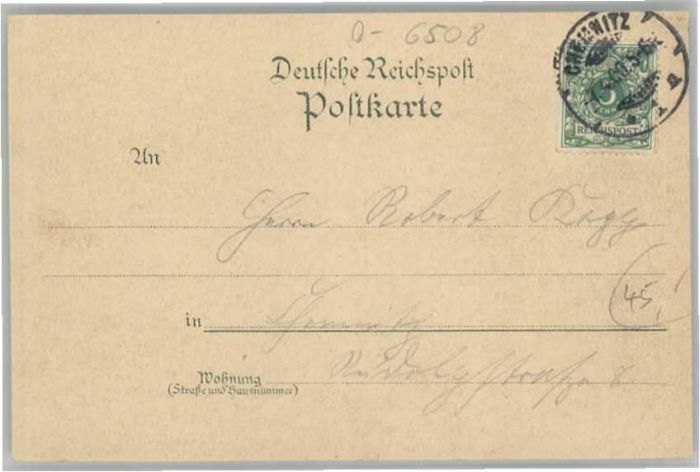 D-6508
CHEMNITZ
5
REICHSPOST
Deutsche Reichspost
Postkarte
An
Herrn Robert
(45,
in Chemnitz
Wohnung
(Straße und Hausnummer)
Rudolfstraße 8.